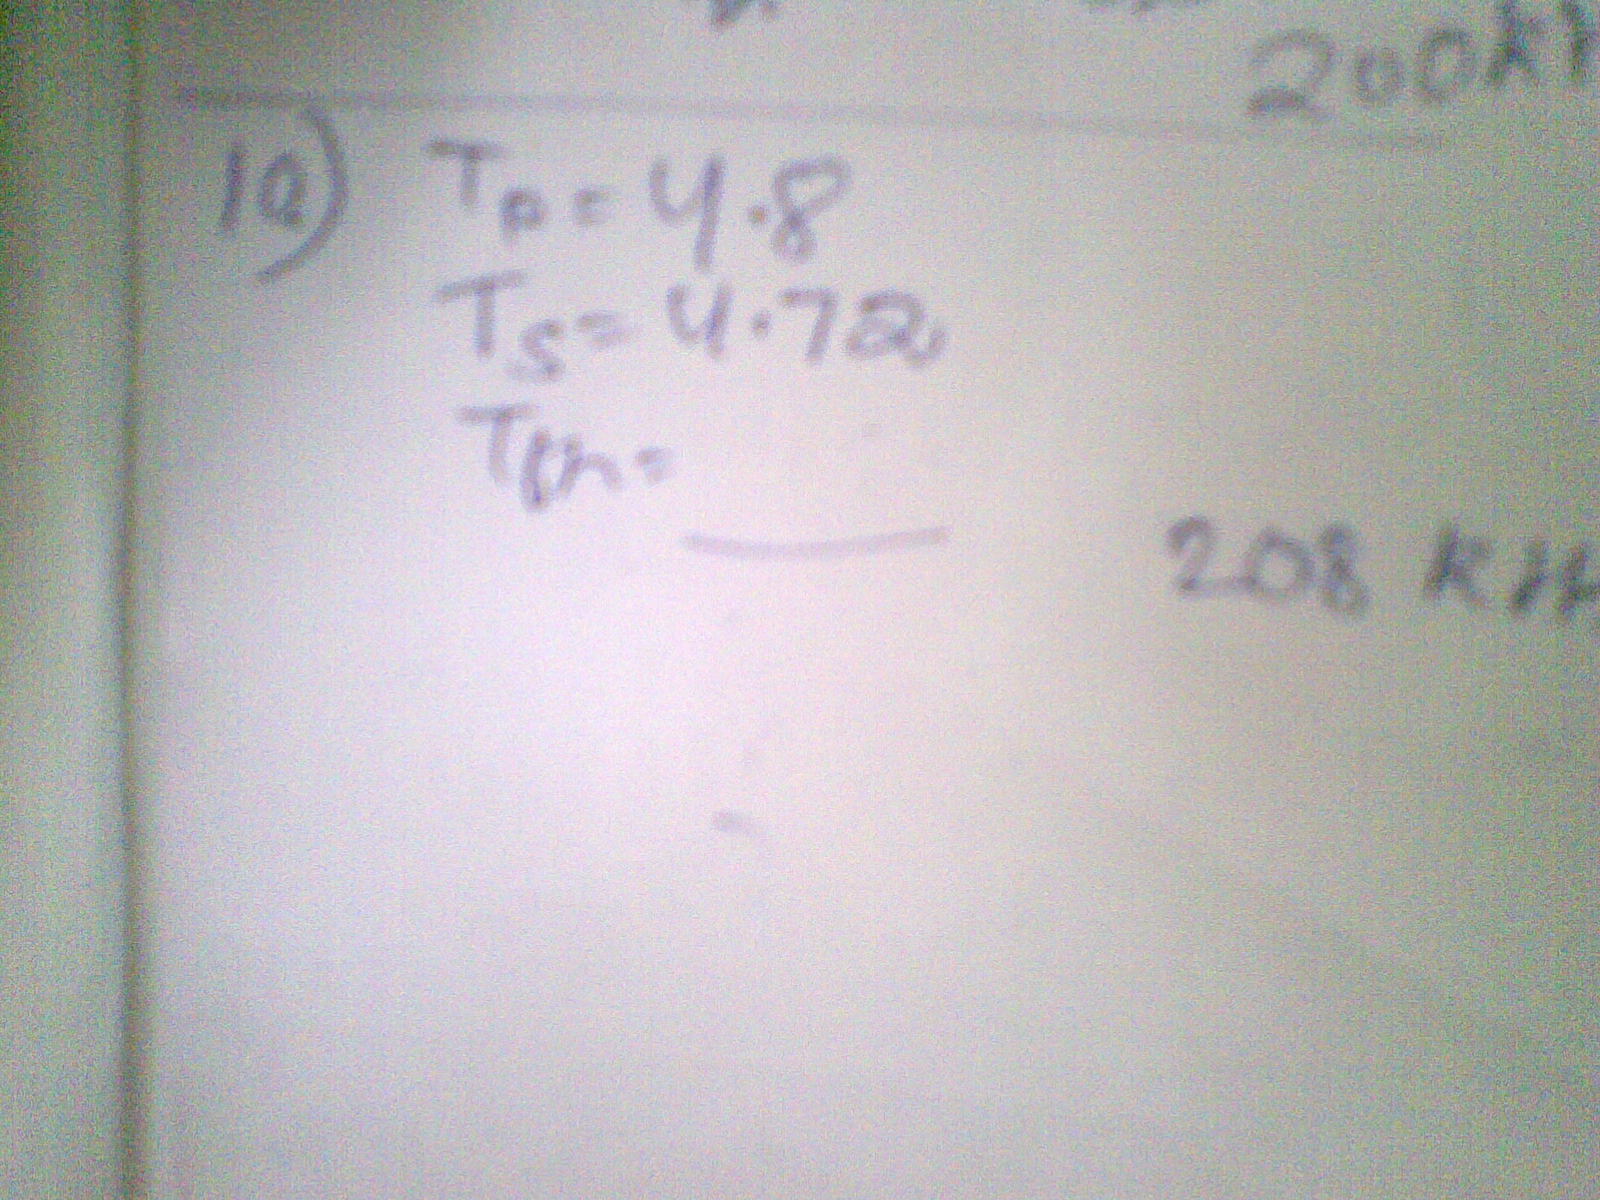 200k
10) Tp = 4.8
Ts = 4.72
Tth =
208 KH